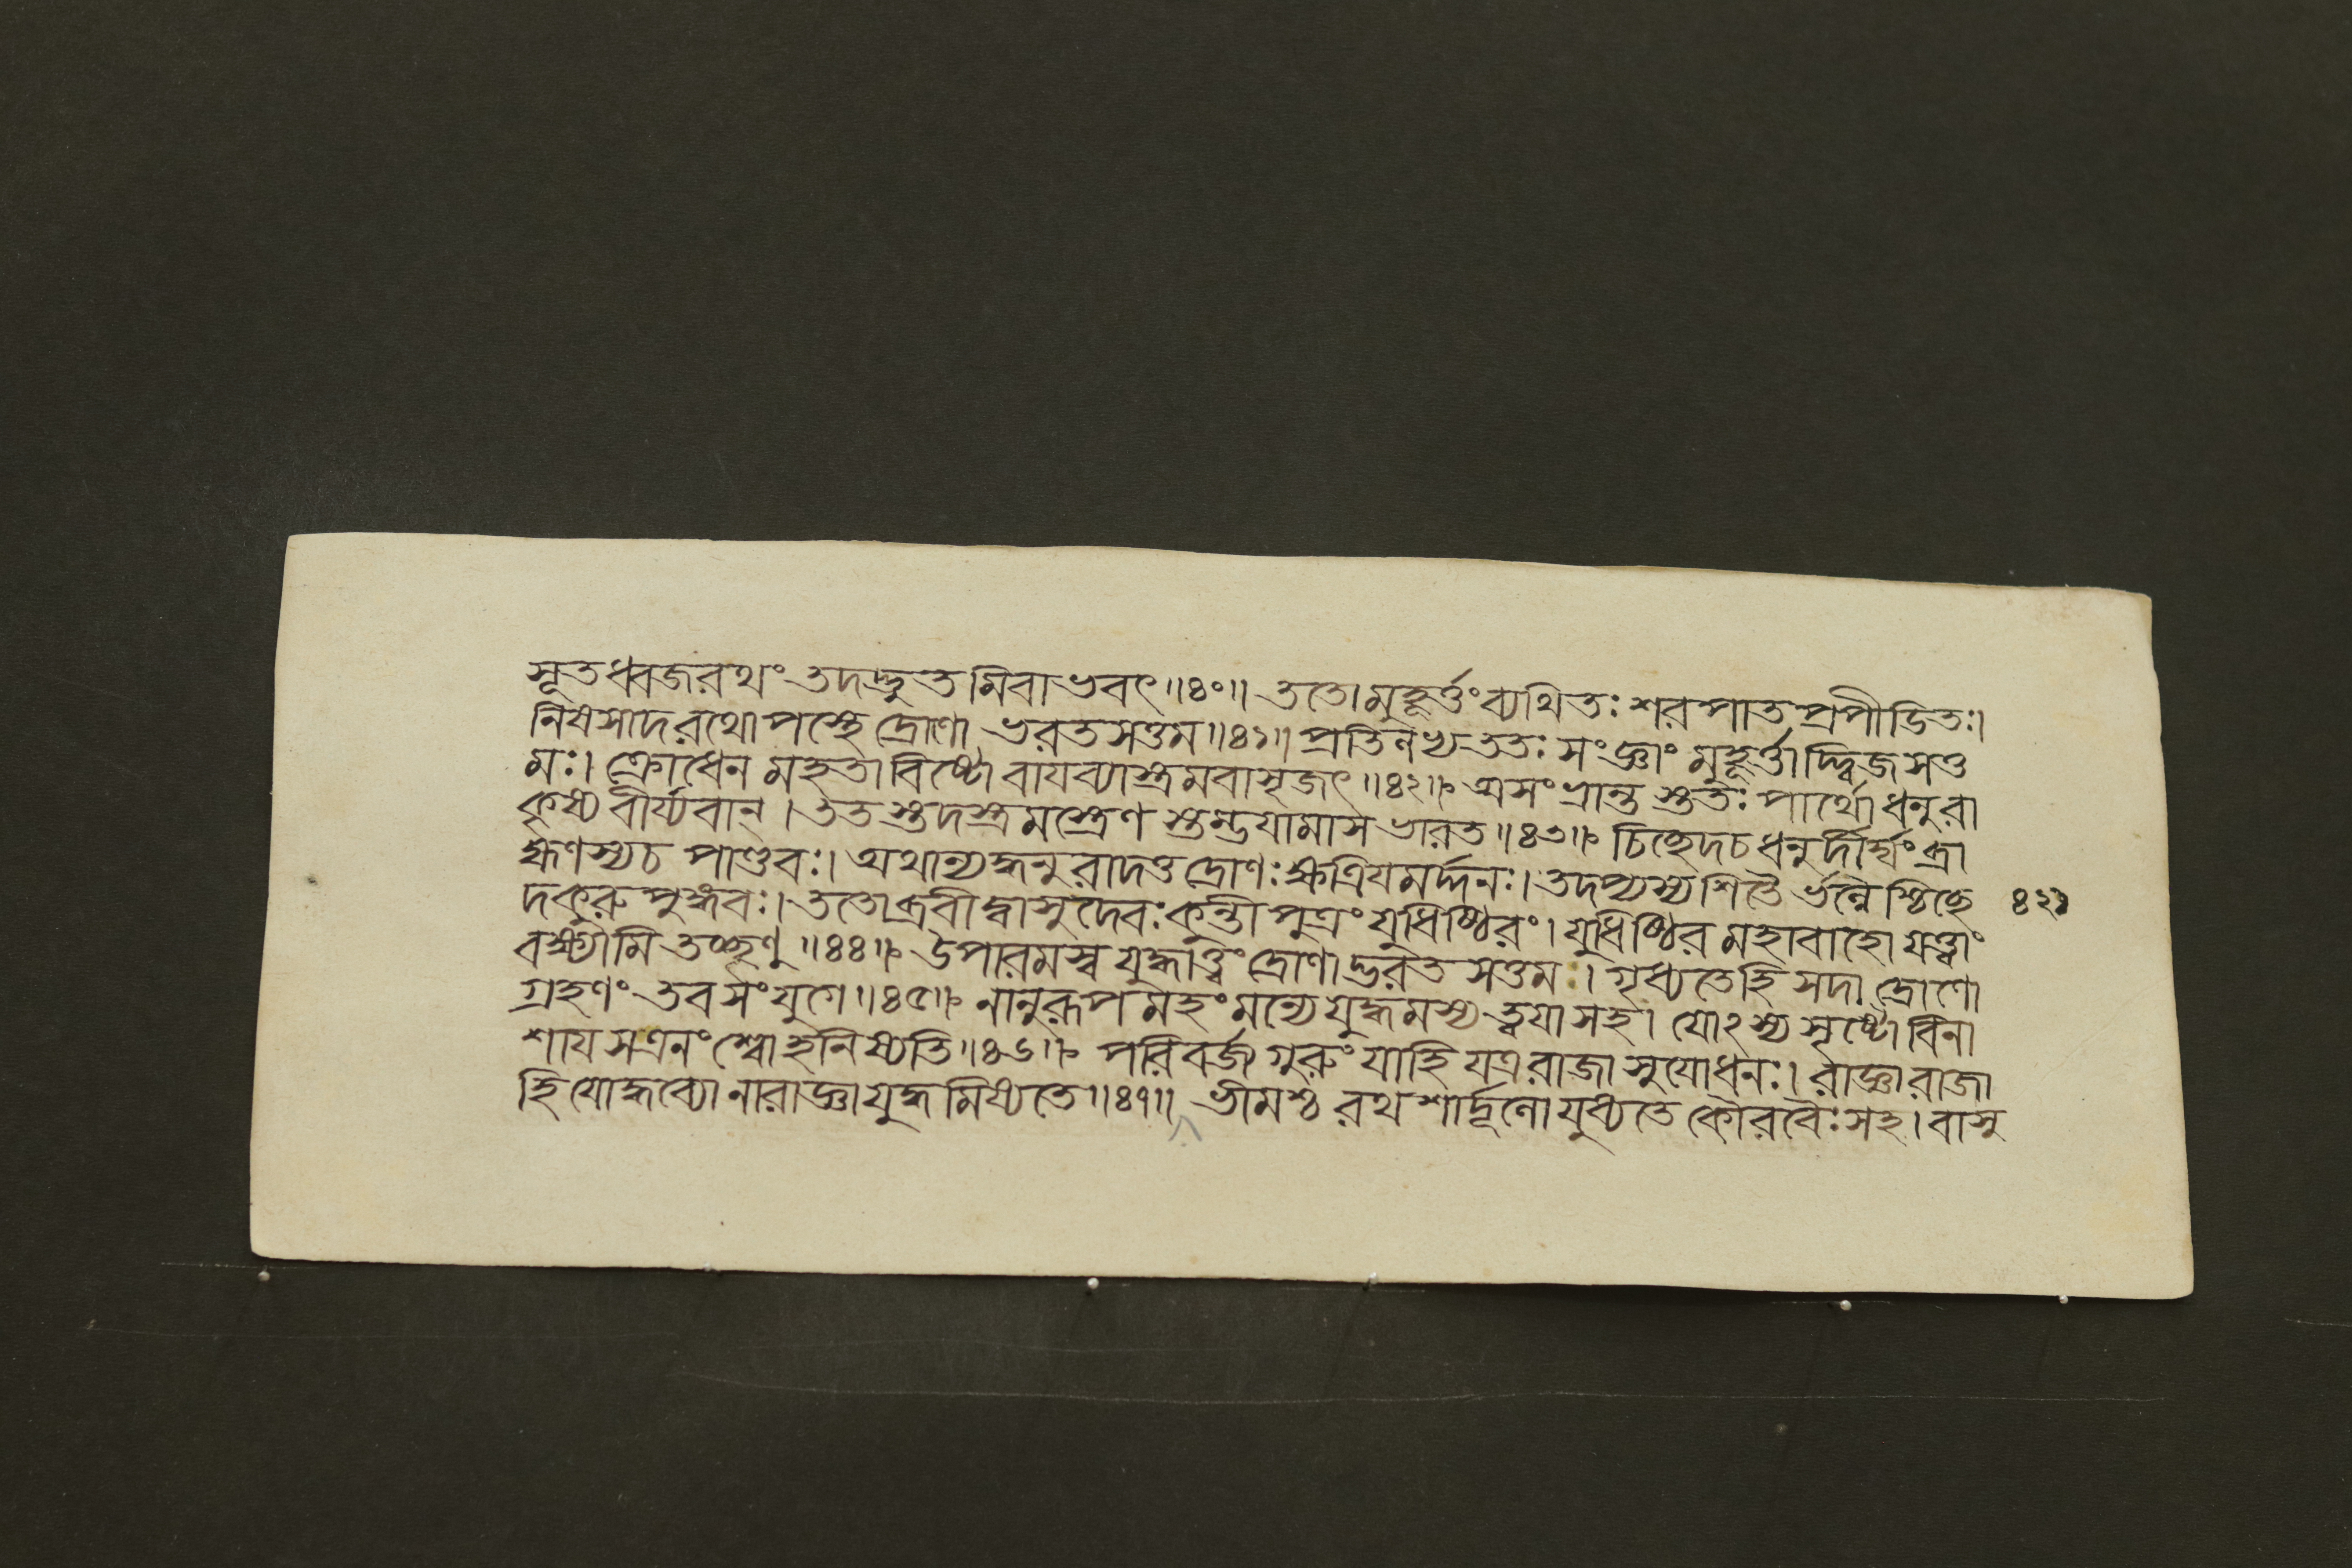 সূতধ্বজরথং তদদ্ভুতমিবাভবৎ॥৪০॥ ততো মুহূর্ত্তং ব্যথিতঃ শরপাতপ্রপীডিতঃ।
নিষসাদ রথোপস্থে দ্রোণো ভরতসত্তম॥৪১॥ প্রতিলভ্য ততঃ সংজ্ঞাং মুহূর্ত্তাদ্দ্বিজসত্ত
মঃ। ক্রোধেন মহতাবিষ্টো বাযব্যাস্ত্রমবাসৃজৎ॥৪২॥ অসংভ্রান্তস্ততঃ পার্থো ধনুরা
কৃষ্য বীর্য্যবান্। ততস্তদস্ত্রমস্ত্রেণ স্তম্ভযামাস ভারত॥৪৩॥ চিচ্ছেদ চ ধনুর্দীর্ঘং ব্রা
হ্মণস্য চ পাণ্ডবঃ। অথান্যদ্ধনুরাদত্ত দ্রোণঃ ক্ষত্রিযমর্দ্দনঃ। তদপ্যস্য শিতৈর্ভল্লৈশ্চিচ্ছে ৪২১
দ কুরুপুঙ্গবঃ। ততোব্রবীদ্বাসুদেবঃ কুন্তীপুত্রং যুধিষ্ঠিরং। যুধিষ্ঠির মহাবাহো যত্ত্বাং
বক্ষ্যামি তচ্ছৃণু॥৪৪॥ উপারমস্ব যুদ্ধাত্ত্বং দ্রোণাদ্ভরতসত্তম। গৃধ্যতে হি সদা দ্রোণো
গ্রহণং তব সংযুগে॥৪৫॥ নানুরূপমহং মন্যে যুদ্ধমস্য ত্বযা সহ। যোঽস্য সৃষ্টো বিনা
শায স এনং শ্বো হনিষ্যতি॥৪৬॥ পরিবর্জ্য গুরুং যাহি যত্র রাজা সুযোধনঃ। রাজ্ঞা রাজা
হি যোদ্ধব্যো নারাজ্ঞা যুদ্ধমিষ্যতে॥৪৭॥ ভীমশ্চ রথশার্দূলো যুধ্যতে কৌরবৈঃ সহ। বাসু